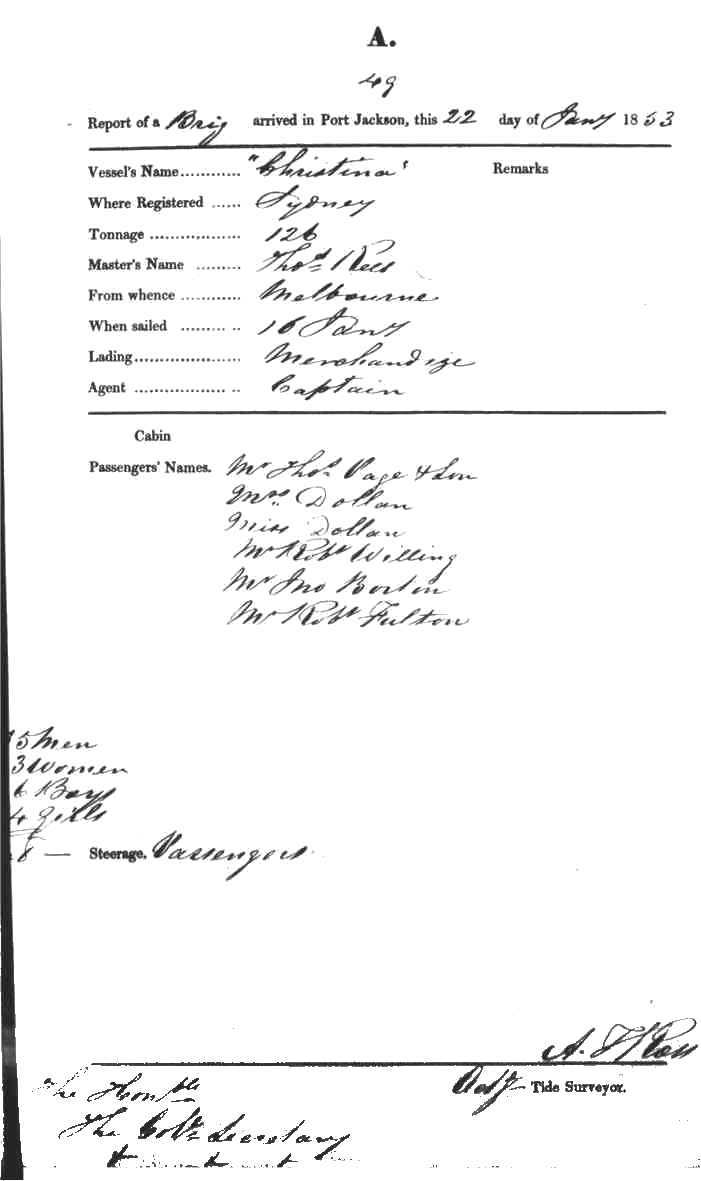 A.
49
Report of a Brig arrived in Port Jackson, this 22 day of Jany 1853
Vessel's Name............ "Christina" Remarks
Where Registered ...... Sydney
Tonnage .................. 126
Master's Name ......... Thos. Rees
From whence ............ Melbourne
When sailed ......... .. 16 Jany
Lading..................... Merchandize
Agent .................. .. Captain
Cabin
Passengers' Names. Mr Thos. Page & Son
Mrs. Dollan
Miss Dollan
Mr Robt Willing
Mr Jno Borton
Mr Robt Fulton
15 Men
3 Women
6 Boys
4 girls
28 — Steerage. Passengers
A. Ross
Actg Tide Surveyor.
The Honble
The Coll. Secretary